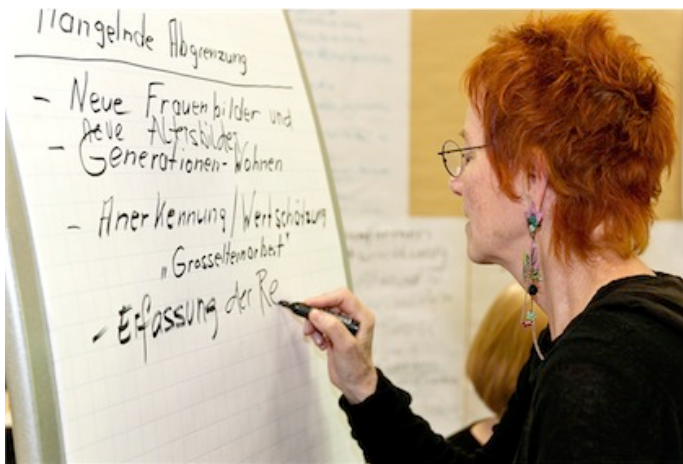 Mangelnde Abgrenzung
- Neue Frauenbilder und
neue Altersbilder
- Generationen-Wohnen
- Anerkennung/Wertschätzung
"Grosselternarbeit"
- Erfassung der Re